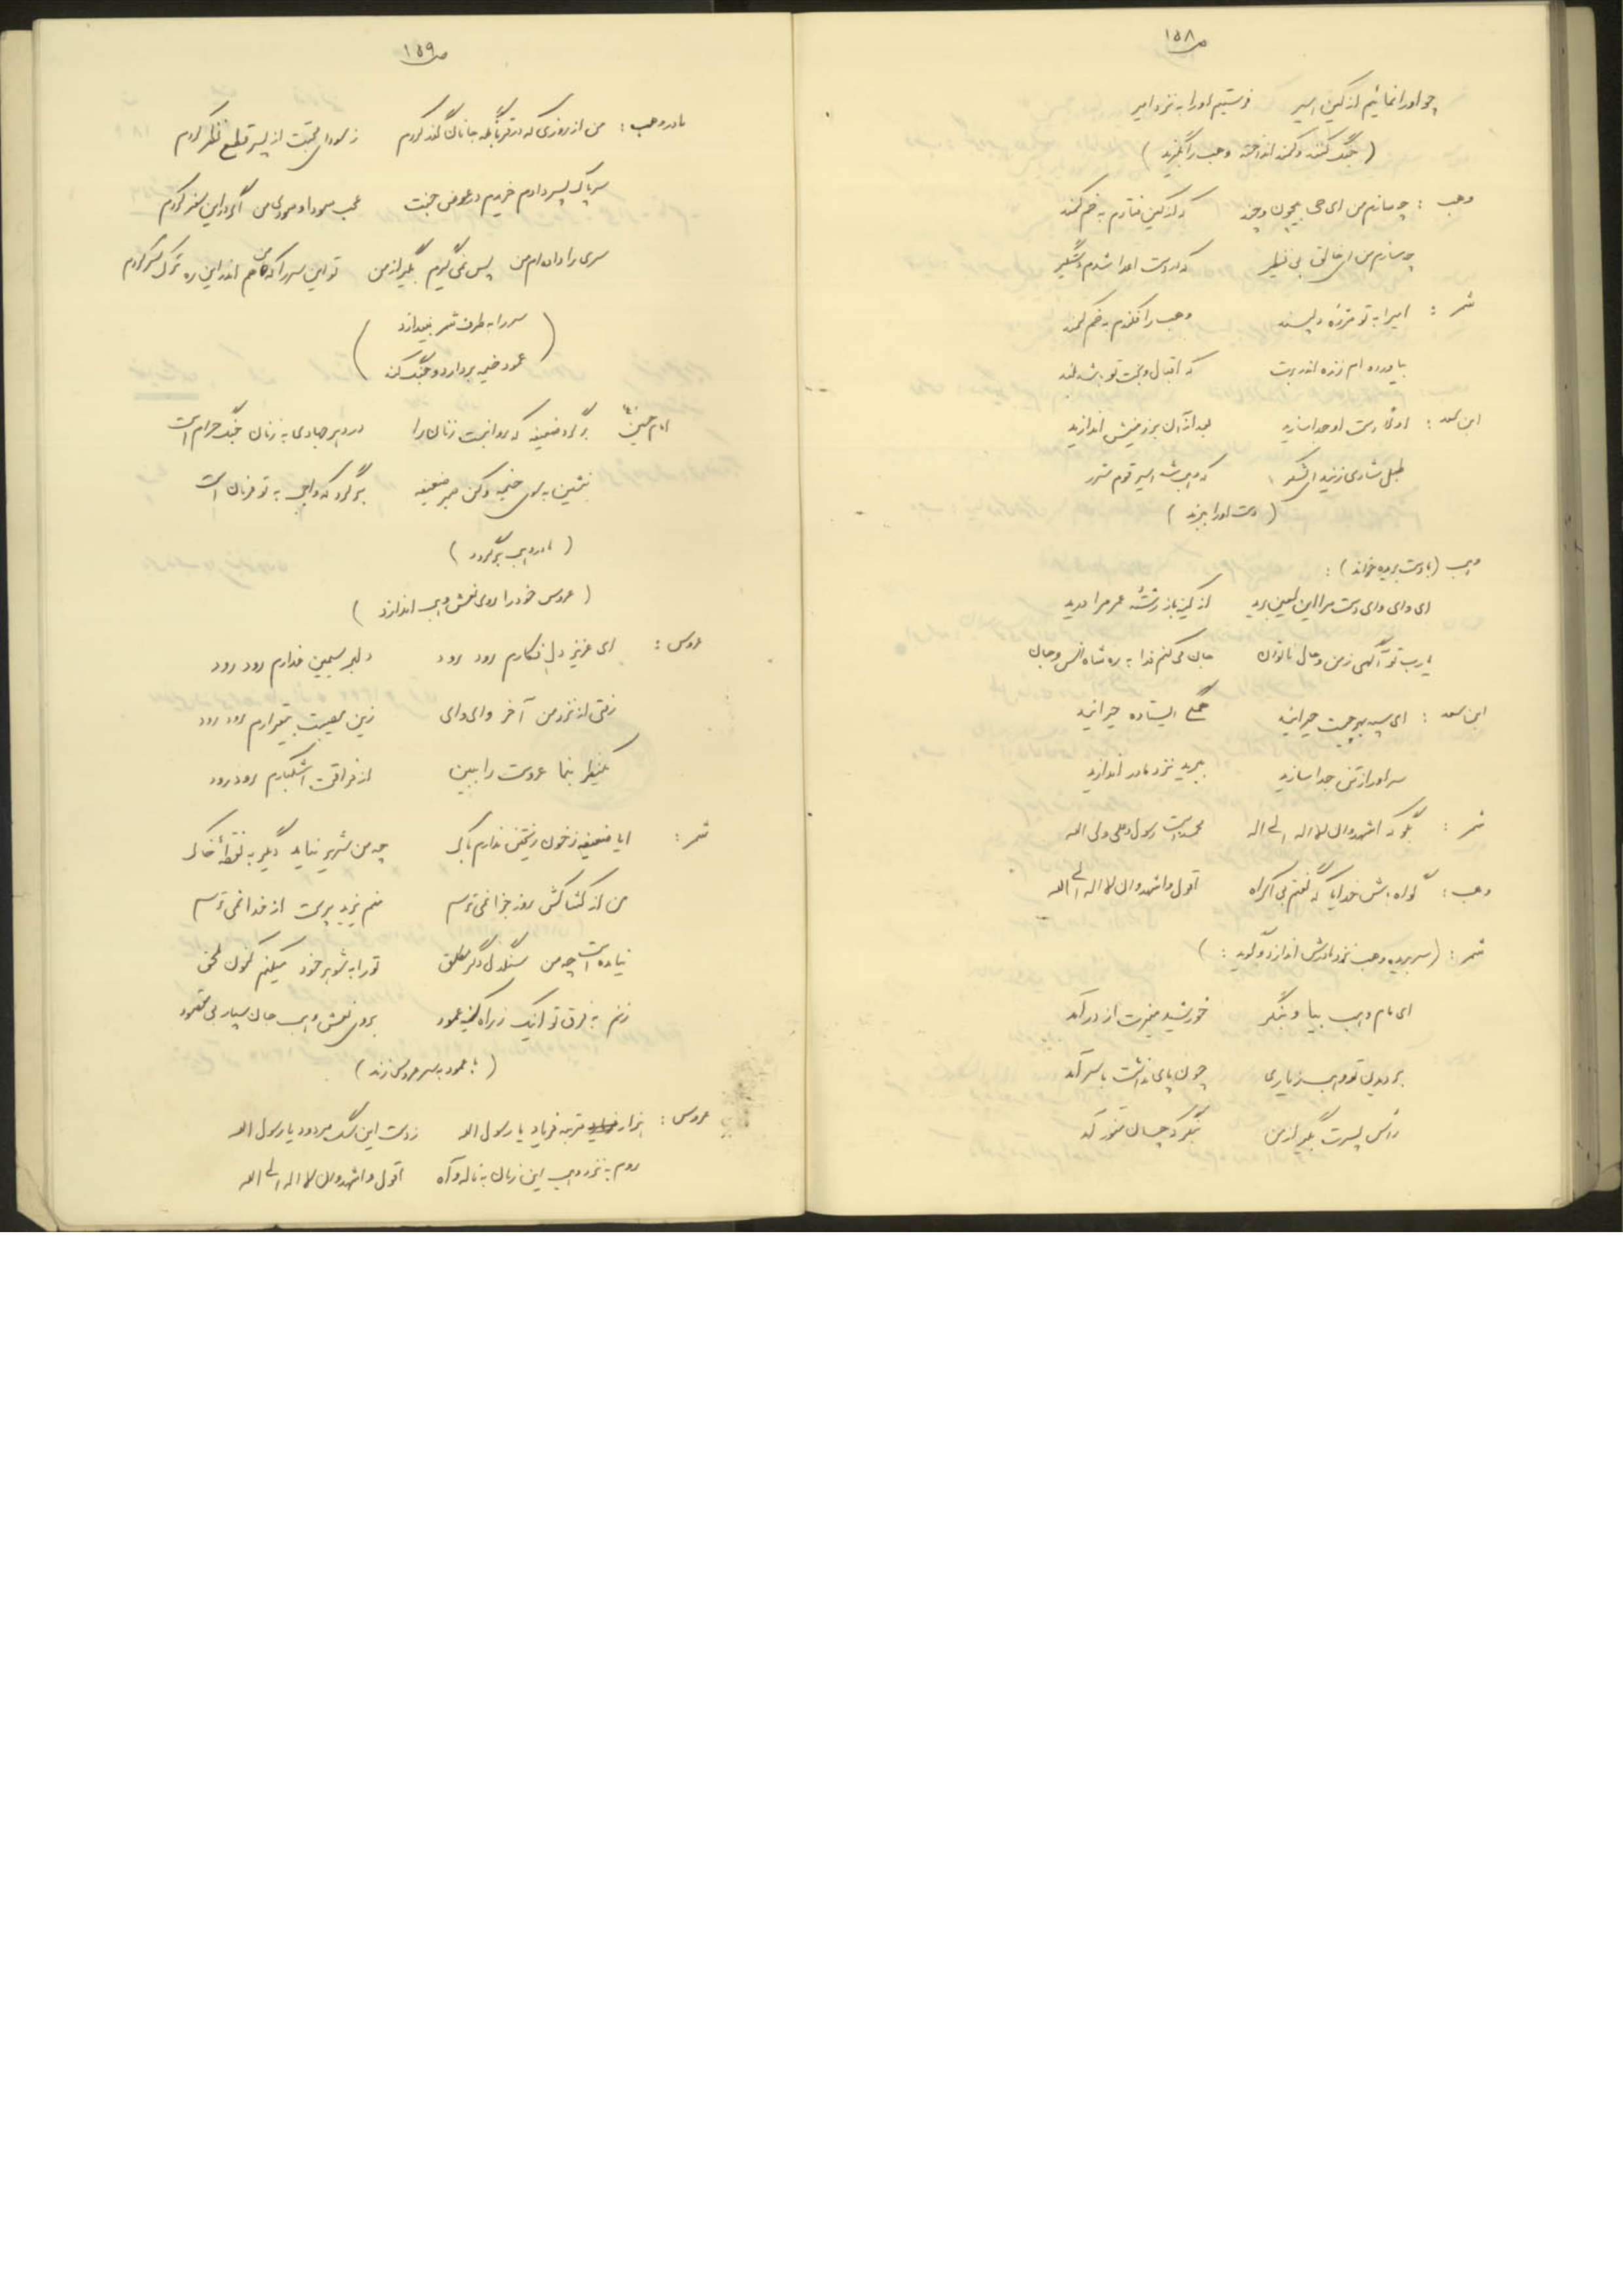 ص ۱۵۸
چو او را نمائیم از کین اسیر فرستیم او را به نزد امیر
(جنگ کنند و کمند انداخته وهب را بگیرند)
وهب : چه سازم من ای حی بیچون و چند که از کین فتادم به خم کمند
چه سازم من ای خالق بی نظیر که در دست اعدا شدم دستگیر
شمر : امیرا به تو مژده دلپسند وهب را فکندم به خم کمند
بیاورده ام زنده اندر برت که اقبال و بخت تو باشد بلند
ابن سعد : اول دست او جدا سازید بعد از آن بر زمینش اندازید
طبل شادی زنید ای لشکر که وهب شد اسیر قوم شرر
(دست او را ببرند)
وهب (با دست بریده خواند) :
ای وای وای دست مرا این لعین برید از کینه باز رشتهٔ عمر مرا درید
یا رب تو آگهی ز من و حال ناتوان جان می کنم فدا به ره شاه انس و جان
ابن سعد : ای سپه بهر چیست حیرانید همگی ایستاده حیرانید
سر او را ز تن جدا سازید ببرید نزد مادر اندازید
شمر : بگو که اشهد و ان لا اله الی اله محمد است رسول و علی ولی اله
وهب : گواه باش خدایا که گفتم بی اکراه اقول و اشهد و ان لا اله الی الله
شمر : (سر بریده وهب نزد مادرش اندازد و گوید :)
ای مام وهب بیا و بنگر خورشید منیرت از در آمد
بر دیدن تو وهب ز یاری چون پای نداشت با سر آمد
رأس پسرت بگیر از من بنگر که چسان منور آمد
ص ۱۵۹
مادر وهب : من از روزی که در قربانگه جانان گذر کردم ز سودای محبت از پسر قطع نظر کردم
سر پاک پسر دادم خریدم در عوض جنت عجب سودا و سودی من اگر در این سفر کردم
سری را داده ام من پس نمی گیرم بگیر از من تو این سر را که من هم اندر این ره ترک سر کردم
(سر را به طرف شمر بیندازد
عمود خیمه بردارد و جنگ کند)
امام حسین : برگرد ضعیفه که روا نیست زنان را در دهر جهادی به زنان جنگ حرام است
بنشین به سوی خیمه و کن صبر ضعیفه برگرد که واجب به تو فرمان است
(مادر وهب برگردد)
(عروس خود را روی نعش وهب اندازد)
عروس : ای عزیز دل فکارم رود رود دلبر سیمین عذارم رود رود
رفتی از نزد من آخر وای وای زین مصیبت بیقرارم رود رود
یکنظر بنما عروست را ببین از فراقت اشکبارم رود رود
شمر : ایا ضعیفه ز خون ریختن ندارم باک چه من شریر نیاید دگر به نقطهٔ خاک
من از کشاکش روز جزا نمی ترسم منم یزید پرست از خدا نمی ترسم
نیامده است چه من سنگدل دگر مطلق تو را به شوهر خود میکنم کنون ملحق
زنم به فرق تو اینک ز راه کینه عمود بروی نعش وهب جان سپار بی مقصود
(با عمود به سر عروس زند)
عروس : هزار مرتبه فریاد یا رسول اله ز دست این سگ مردود یا رسول اله
روم به نزد وهب این زمان به ناله و آه اقول و اشهد و ان لا اله الی اله